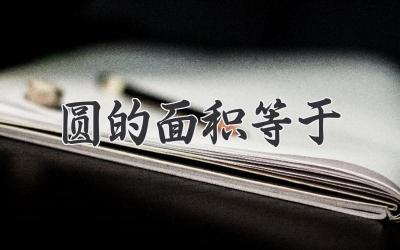 圆的面积等于